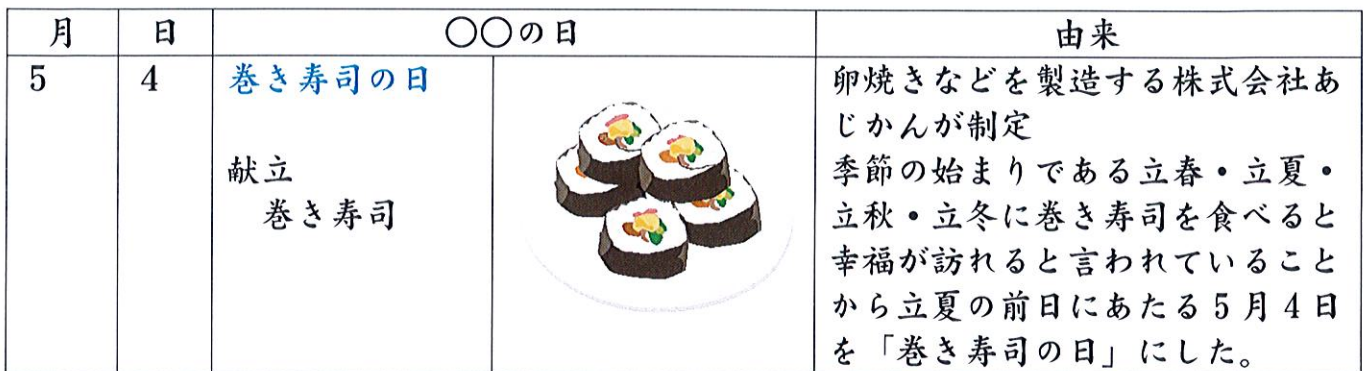 月 日 〇〇の日 由来
5 4 巻き寿司の日
献立
巻き寿司
卵焼きなどを製造する株式会社あ
じかんが制定
季節の始まりである立春・立夏・
立秋・立冬に巻き寿司を食べると
幸福が訪れると言われていること
から立夏の前日にあたる5月4日
を「巻き寿司の日」にした。